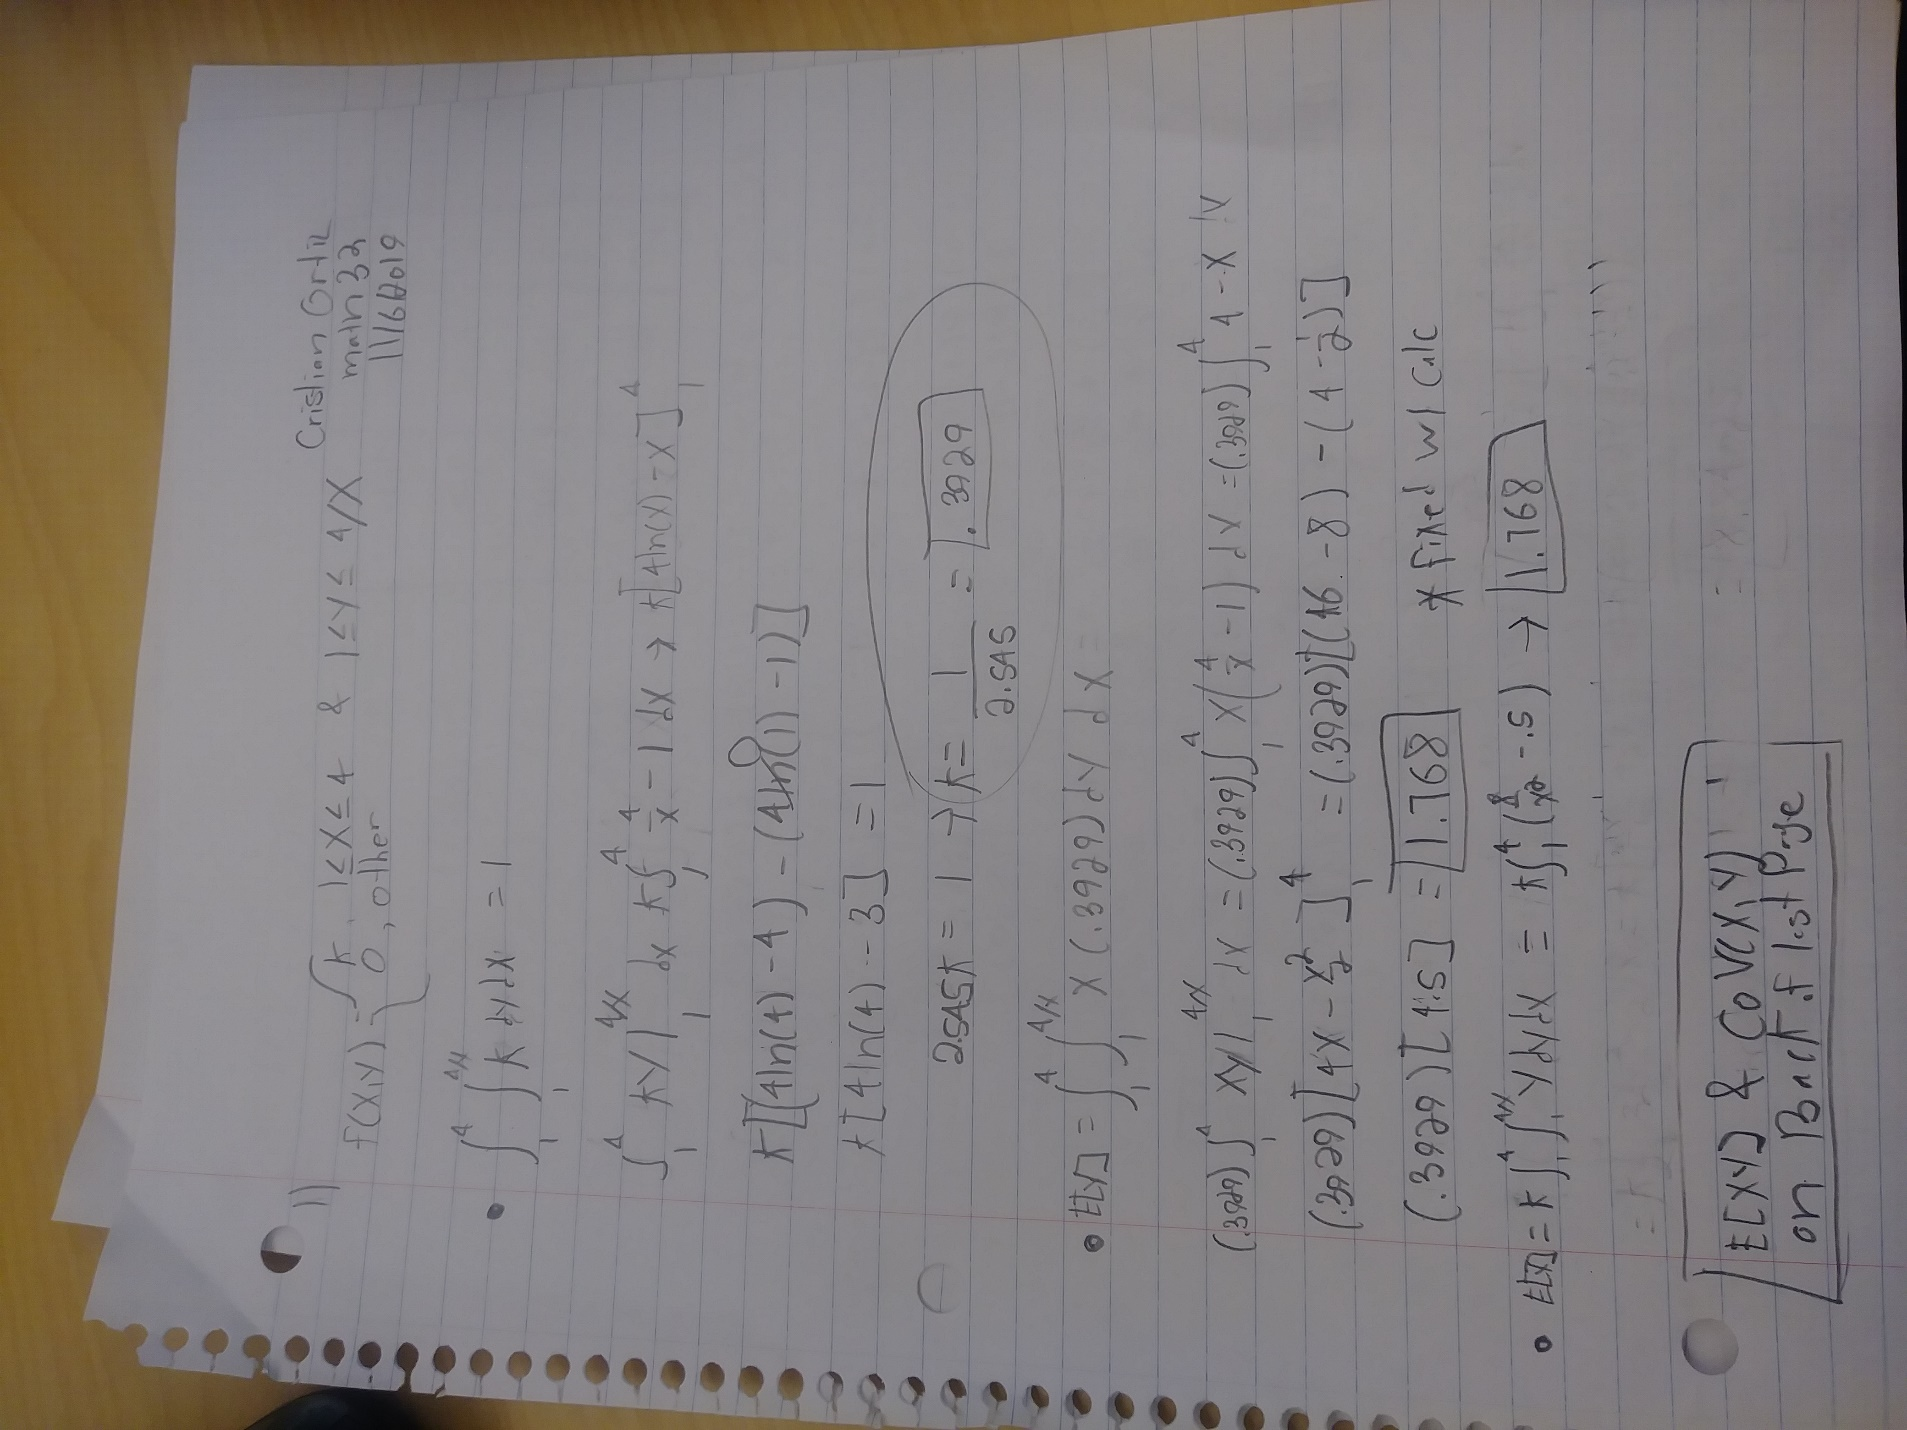 Cristian Ortiz
math 32
11/6/2019
1) f(x,y) = { k, 1≤x≤4 & 1≤y≤4/x
0, other
• ∫₁⁴ ∫₁^(4/x) k dy dx = 1
∫₁⁴ ky |₁^(4/x) dx k∫₁⁴ 4/x - 1 dx → k[4ln(x) - x]₁⁴
k[(4ln(4) - 4) - (4ln(1) - 1)]
k[4ln(4) - 3] = 1
2.545k = 1 → k = 1/2.545 = .3929
• E[X] = ∫₁⁴ ∫₁^(4/x) x(.3929) dy dx =
(.3929) ∫₁⁴ xy |₁^(4/x) dx = (.3929) ∫₁⁴ x(4/x - 1) dx = (.3929) ∫₁⁴ 4 - x dx
(.3929)[4x - x²/2]₁⁴ = (.3929)[(16 - 8) - (4 - 1/2)]
(.3929)[4.5] = 1.768 * fixed w/ calc
• E[Y] = k ∫₁⁴ ∫₁^(4/x) y dy dx = k ∫₁⁴ (8/x² - .5) → 1.768
E[XY] & COV(X,Y)
on Back of last Page